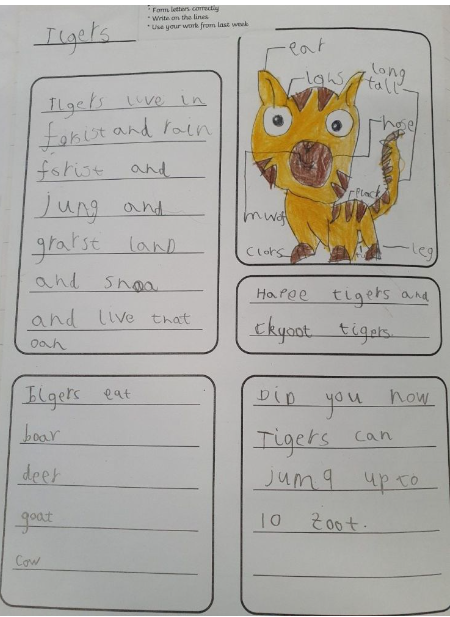 * Form letters correctly
* Write on the lines
* Use your work from last week
Tigers
Tigers live in
forist and rain
forist and
jung and
grarst land
and snoa
and live that
oan
ear
long
tall
nose
black
mwof
clors
leg
Hapee tigers and
ckyoot tigers.
Tigers eat
boar
deer
goat
cow
Did you now
Tigers can
jumq up to
10 foot.